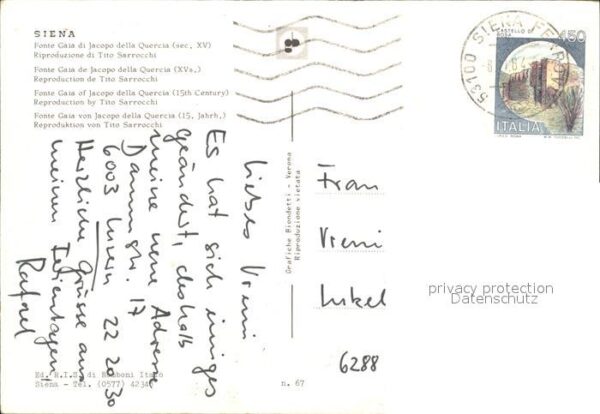 SIENA
Fonte Gaia di Jacopo della Quercia (sec, XV)
Riproduzione di Tito Sarrocchi
Fonte Gaia de Jacopo della Quercia (XVs,)
Reproduction de Tito Sarrocchi
Fonte Gaia of Jacopo della Quercia (15th Century)
Reproduction by Tito Sarrocchi
Fonte Gaia von Jacopo della Quercia (15, Jahrh,)
Reproduktion von Tito Sarrocchi
Liebes Vreni
Es hat sich einiges
geändert, deshalb
meine neue Adresse
Dammstr. 17
6003 Luzern 22 20 30
Herzliche Grüsse aus
meinen Ferientagen
Rafael
Ed. R.I.S. di
Siena - Tel. (0577) 4234
n. 67
Grafiche Biondetti - Verona
Riproduzione vietata
Frau
Vreni
6288
53100 SIENA
CASTELLO DI
450
ITALIA
privacy protection
Datenschutz